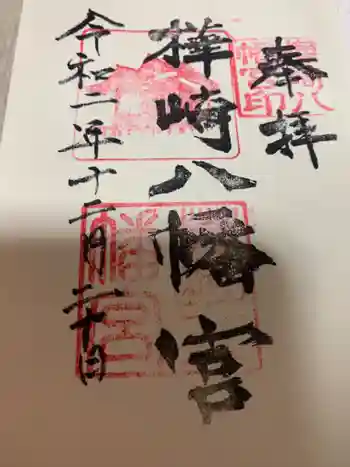 奉拝
樺崎八幡宮
令和二年十二月二十日